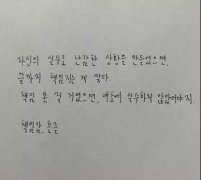 자신의 실수로 난감한 상황을 만들었으면,
끝까지 책임지는 게 맞다.
책임 못 질 거였으면, 애초에 실수하지 않았어야지.
책임감, 든든